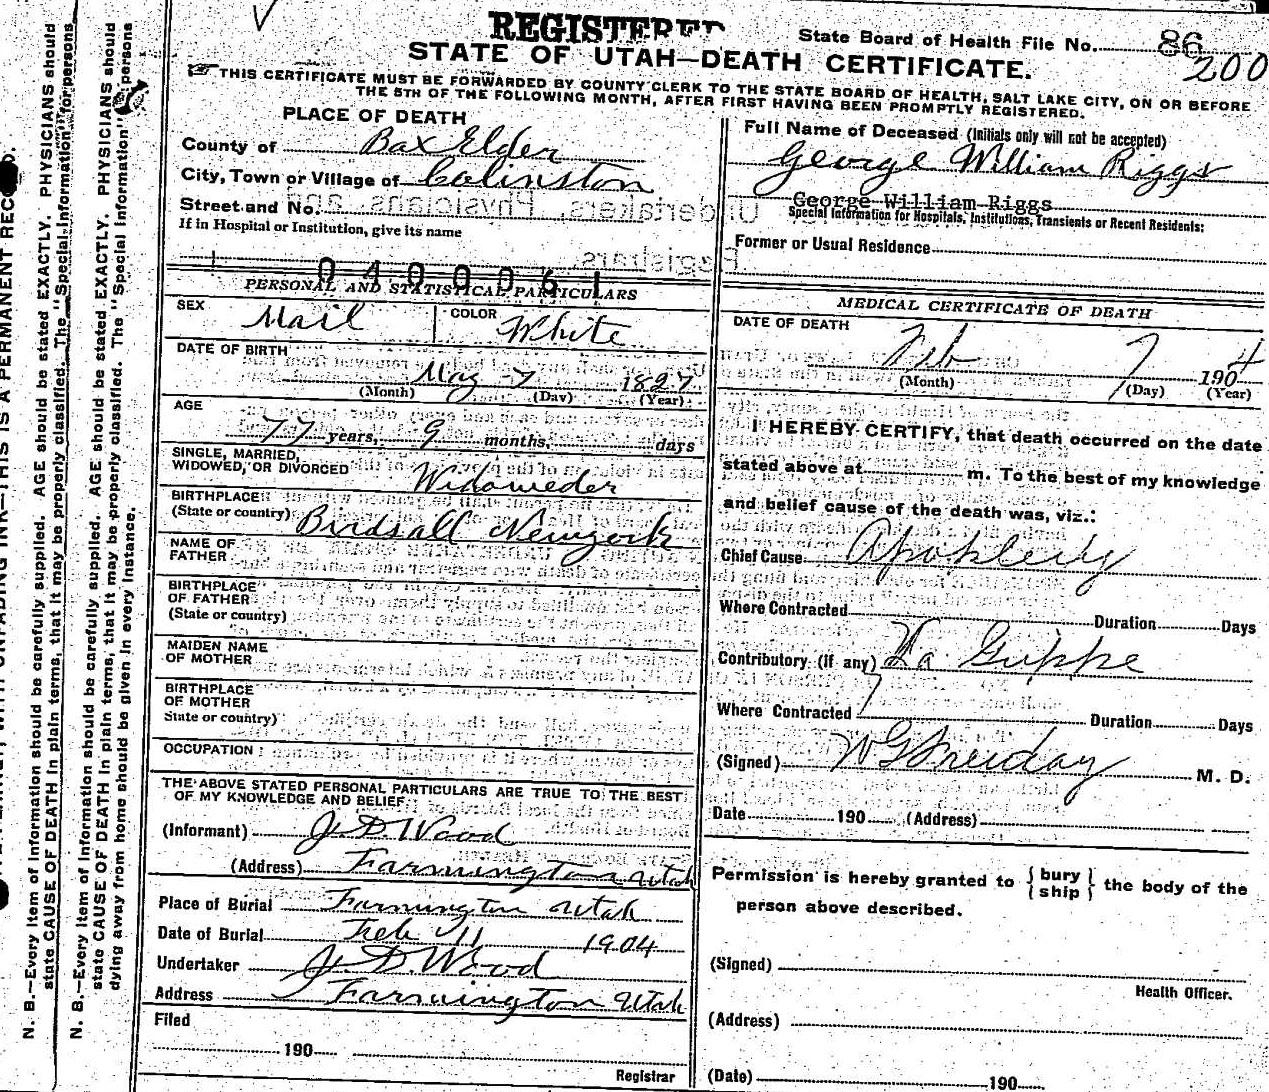 REGISTERED
State Board of Health File No. 86
200
STATE OF UTAH—DEATH CERTIFICATE.
THIS CERTIFICATE MUST BE FORWARDED BY COUNTY CLERK TO THE STATE BOARD OF HEALTH, SALT LAKE CITY, ON OR BEFORE
THE 5TH OF THE FOLLOWING MONTH, AFTER FIRST HAVING BEEN PROMPTLY REGISTERED.
PLACE OF DEATH
County of Box Elder
City, Town or Village of Colinston
Street and No.
If in Hospital or Institution, give its name
040006 1
PERSONAL AND STATISTICAL PARTICULARS
SEX Mail COLOR White
DATE OF BIRTH
May 7 1827
(Month) (Day) (Year)
AGE
77 years, 9 months, days
SINGLE, MARRIED,
WIDOWED, OR DIVORCED Widoweder
BIRTHPLACE
(State or country) Birdsall Newyork
NAME OF
FATHER
BIRTHPLACE
OF FATHER
(State or country)
MAIDEN NAME
OF MOTHER
BIRTHPLACE
OF MOTHER
State or country)
OCCUPATION
THE ABOVE STATED PERSONAL PARTICULARS ARE TRUE TO THE BEST
OF MY KNOWLEDGE AND BELIEF
(Informant) J. D. Wood
(Address) Farmington Utah
Place of Burial Farmington Utah
Date of Burial Feb 11 1904
Undertaker J. D. Wood
Address Farmington Utah
Filed
190
Registrar
Full Name of Deceased (Initials only will not be accepted)
George William Riggs
George William Riggs
Special Information for Hospitals, Institutions, Transients or Recent Residents:
Former or Usual Residence
MEDICAL CERTIFICATE OF DEATH
DATE OF DEATH
Feb 7 1904
(Month) (Day) (Year)
I HEREBY CERTIFY, that death occurred on the date
stated above at m. To the best of my knowledge
and belief cause of the death was, viz.:
Chief Cause Apoplexiy
Where Contracted Duration Days
Contributory (if any) La Grippe
Where Contracted Duration Days
(Signed) M. D.
Date 190 (Address)
Permission is hereby granted to { bury } the body of the
{ ship }
person above described.
(Signed)
Health Officer.
(Address)
(Date) 190
N. B.—Every item of information should be carefully supplied. AGE should be stated EXACTLY. PHYSICIANS should
state CAUSE OF DEATH in plain terms, that it may be properly classified. The "Special Information" for persons
N. B.—Every item of information should be carefully supplied. AGE should be stated EXACTLY. PHYSICIANS should
state CAUSE OF DEATH in plain terms, that it may be properly classified. The "Special Information" persons
dying away from home should be given in every instance.
UNFADING INK—THIS IS A PERMANENT RECORD.